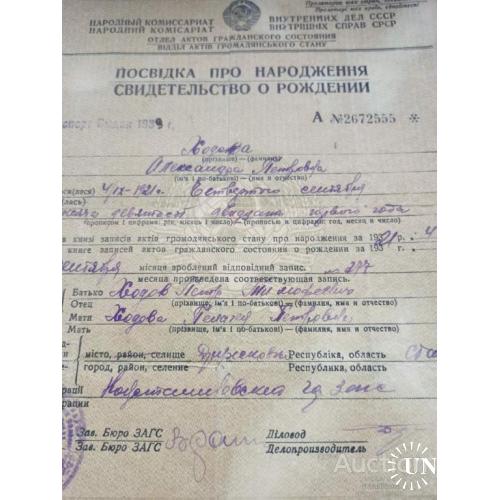 Пролетарі всіх країн, єднайтеся!
НАРОДНЫЙ КОМИССАРИАТ ВНУТРЕННИХ ДЕЛ СССР
НАРОДНИЙ КОМІСАРІАТ ВНУТРІШНІХ СПРАВ СРСР
ОТДЕЛ АКТОВ ГРАЖДАНСКОГО СОСТОЯНИЯ
ВІДДІЛ АКТІВ ГРОМАДЯНСЬКОГО СТАНУ
ПОСВІДКА ПРО НАРОДЖЕННЯ
СВИДЕТЕЛЬСТВО О РОЖДЕНИИ
1939 г.
А №2672555
Ходова
(прізвище)—(фамилия)
Александра Петровна
(ім'я і по-батькові)—(имя и отчество)
4/IX-1921г. Четвертого сентября
девятьсот двадцать первого года
(прописом і цифрами: рік, місяць і число)—(прописью и цифрами: год, месяц и число)
в книзі записів актів громадянського стану про народження за 1921 р. 4
книге записей актов гражданского состояния о рождении за 193 г.
сентября місяця зроблений відповідний запис. № 277
месяца произведена соответствующая запись.
Батько Ходов Петр Тимофеевич
Отец (прізвище, ім'я і по-батькові)—(фамилия, имя и отчество)
Мати Ходова Петровна
Мать (прізвище, ім'я і по-батькові)—(фамилия, имя и отчество)
місто, район, селище Республіка, область
город, район, селение Республика, область
Зав. Бюро ЗАГС Діловод
Зав. Бюро ЗАГС Делопроизводитель
UN